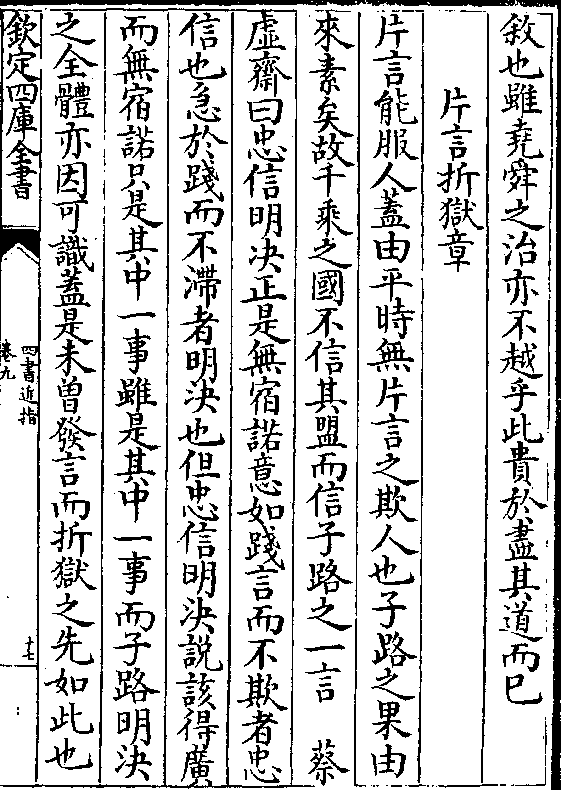 敘也雖堯舜之治亦不越乎此貴於盡其道而已
片言折獄章
片言能服人蓋由平時無片言之欺人也子路之果由
來素矣故千乘之國不信其盟而信子路之一言　蔡
虛齋曰忠信明決正是無宿諾意如踐言而不欺者忠
信也急於踐而不滯者明決也但忠信明決説該得廣
而無宿諾只是其中一事雖是其中一事而子路明決
之全體亦因可識蓋是未曽發言而折獄之先如此也
欽定四庫全書
四書近指
卷九
十七